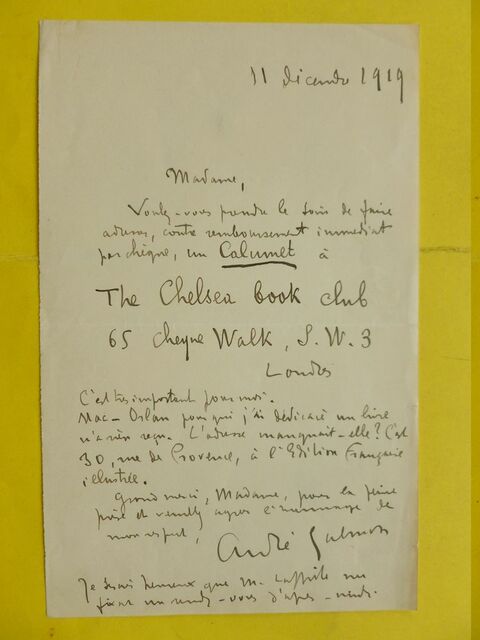 11 décembre 1919
Madame,
Voulez-vous prendre le soin de faire
adresser, contre remboursement immédiat
par chèque, un Calumet à
The Chelsea book club
65 cheyne Walk, S.W.3
Londres
C'est très important pour moi.
Mac-Orlan pour qui j'ai dédicacé un livre
n'a rien reçu. L'adresse manquait-elle? C'est
30, rue de Provence, à l'Édition Française
illustrée.
Grand merci, Madame, pour la peine
prise et veuillez agréer l'hommage de
mon respect,
André Salmon
Je serais heureux que M. me
fixât un rendez-vous d'après-midi.